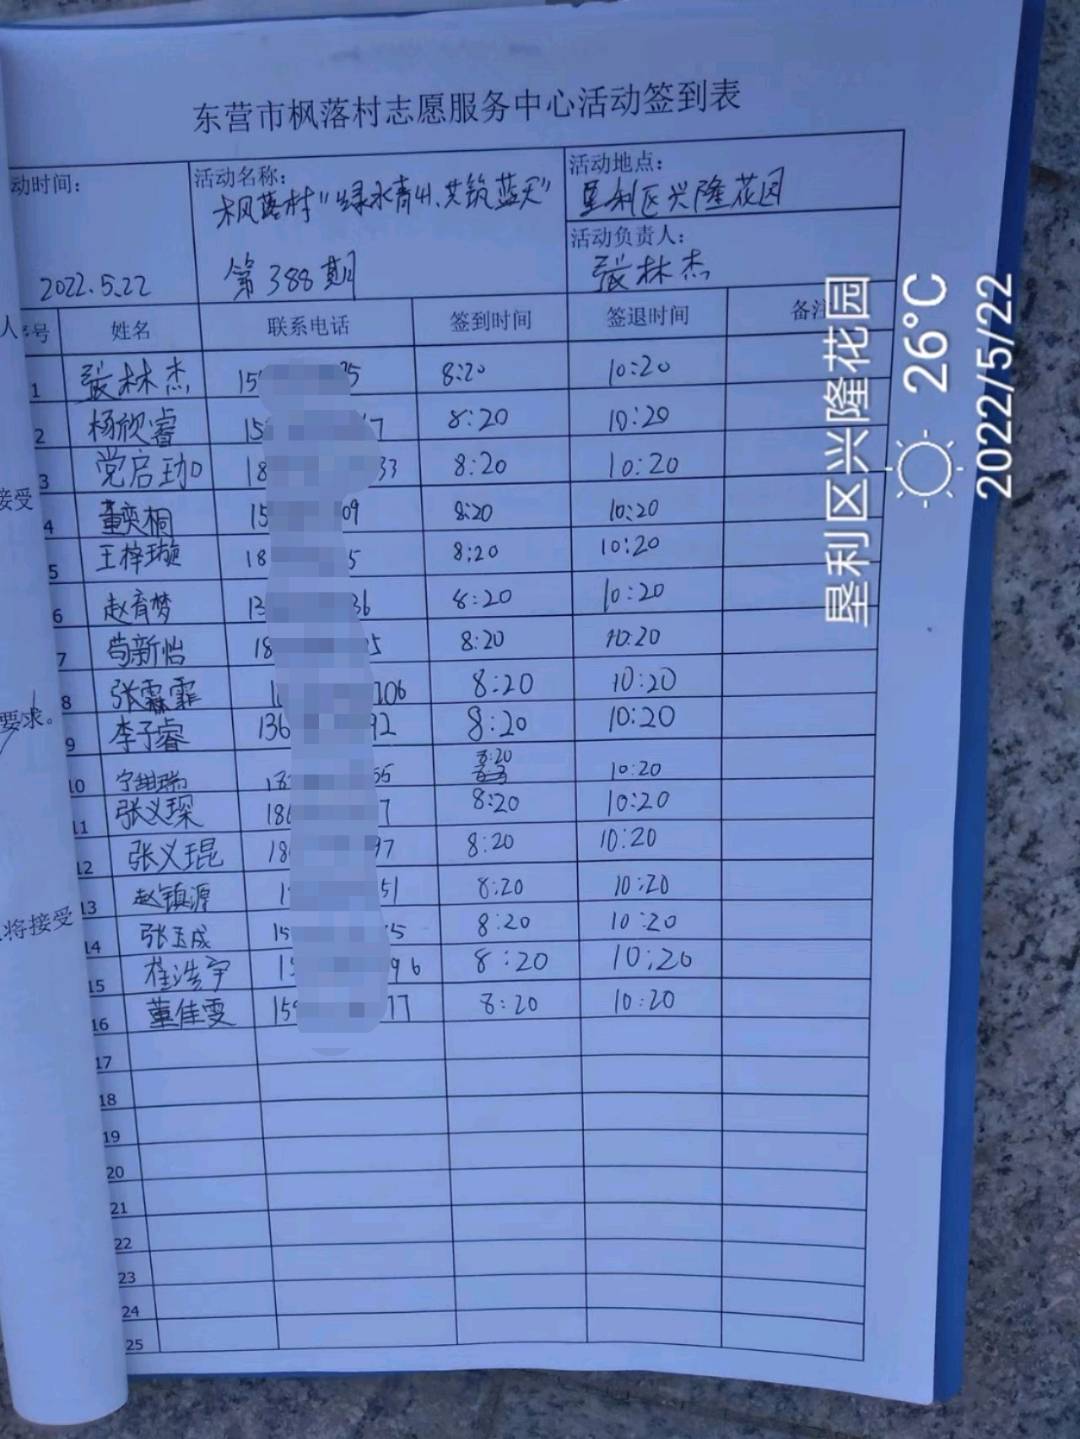 东营市枫落村志愿服务中心活动签到表
动时间： 活动名称： 活动地点：
枫落村"绿水青山、共筑蓝天" 垦利区兴隆花园
活动负责人：
2022.5.22 第388期 张林杰
人 序号 姓名 联系电话 签到时间 签退时间 备注
1 张林杰 15 35 8:20 10:20
2 杨欣睿 15 7 8:20 10:20
3 党启珈 18 33 8:20 10:20
接受
4 董奕桐 15 09 8:20 10:20
5 王梓璇 18 5 8:20 10:20
6 赵育梦 13 36 8:20 10:20
7 苟新怡 18 5 8:20 10:20
8 张霖霏 1 106 8:20 10:20
要求。
9 李子睿 136 92 8:20 10:20
10 宁 瑞 18 55 8:20 10:20
11 张义琛 186 7 8:20 10:20
12 张义琨 18 97 8:20 10:20
13 赵镇源 1 51 8:20 10:20
将接受
14 张玉成 15 5 8:20 10:20
15 崔浩宇 15 96 8:20 10:20
16 董佳雯 15 77 8:20 10:20
17
18
19
20
21
22
23
24
25
垦利区兴隆花园
26°C
2022/5/22